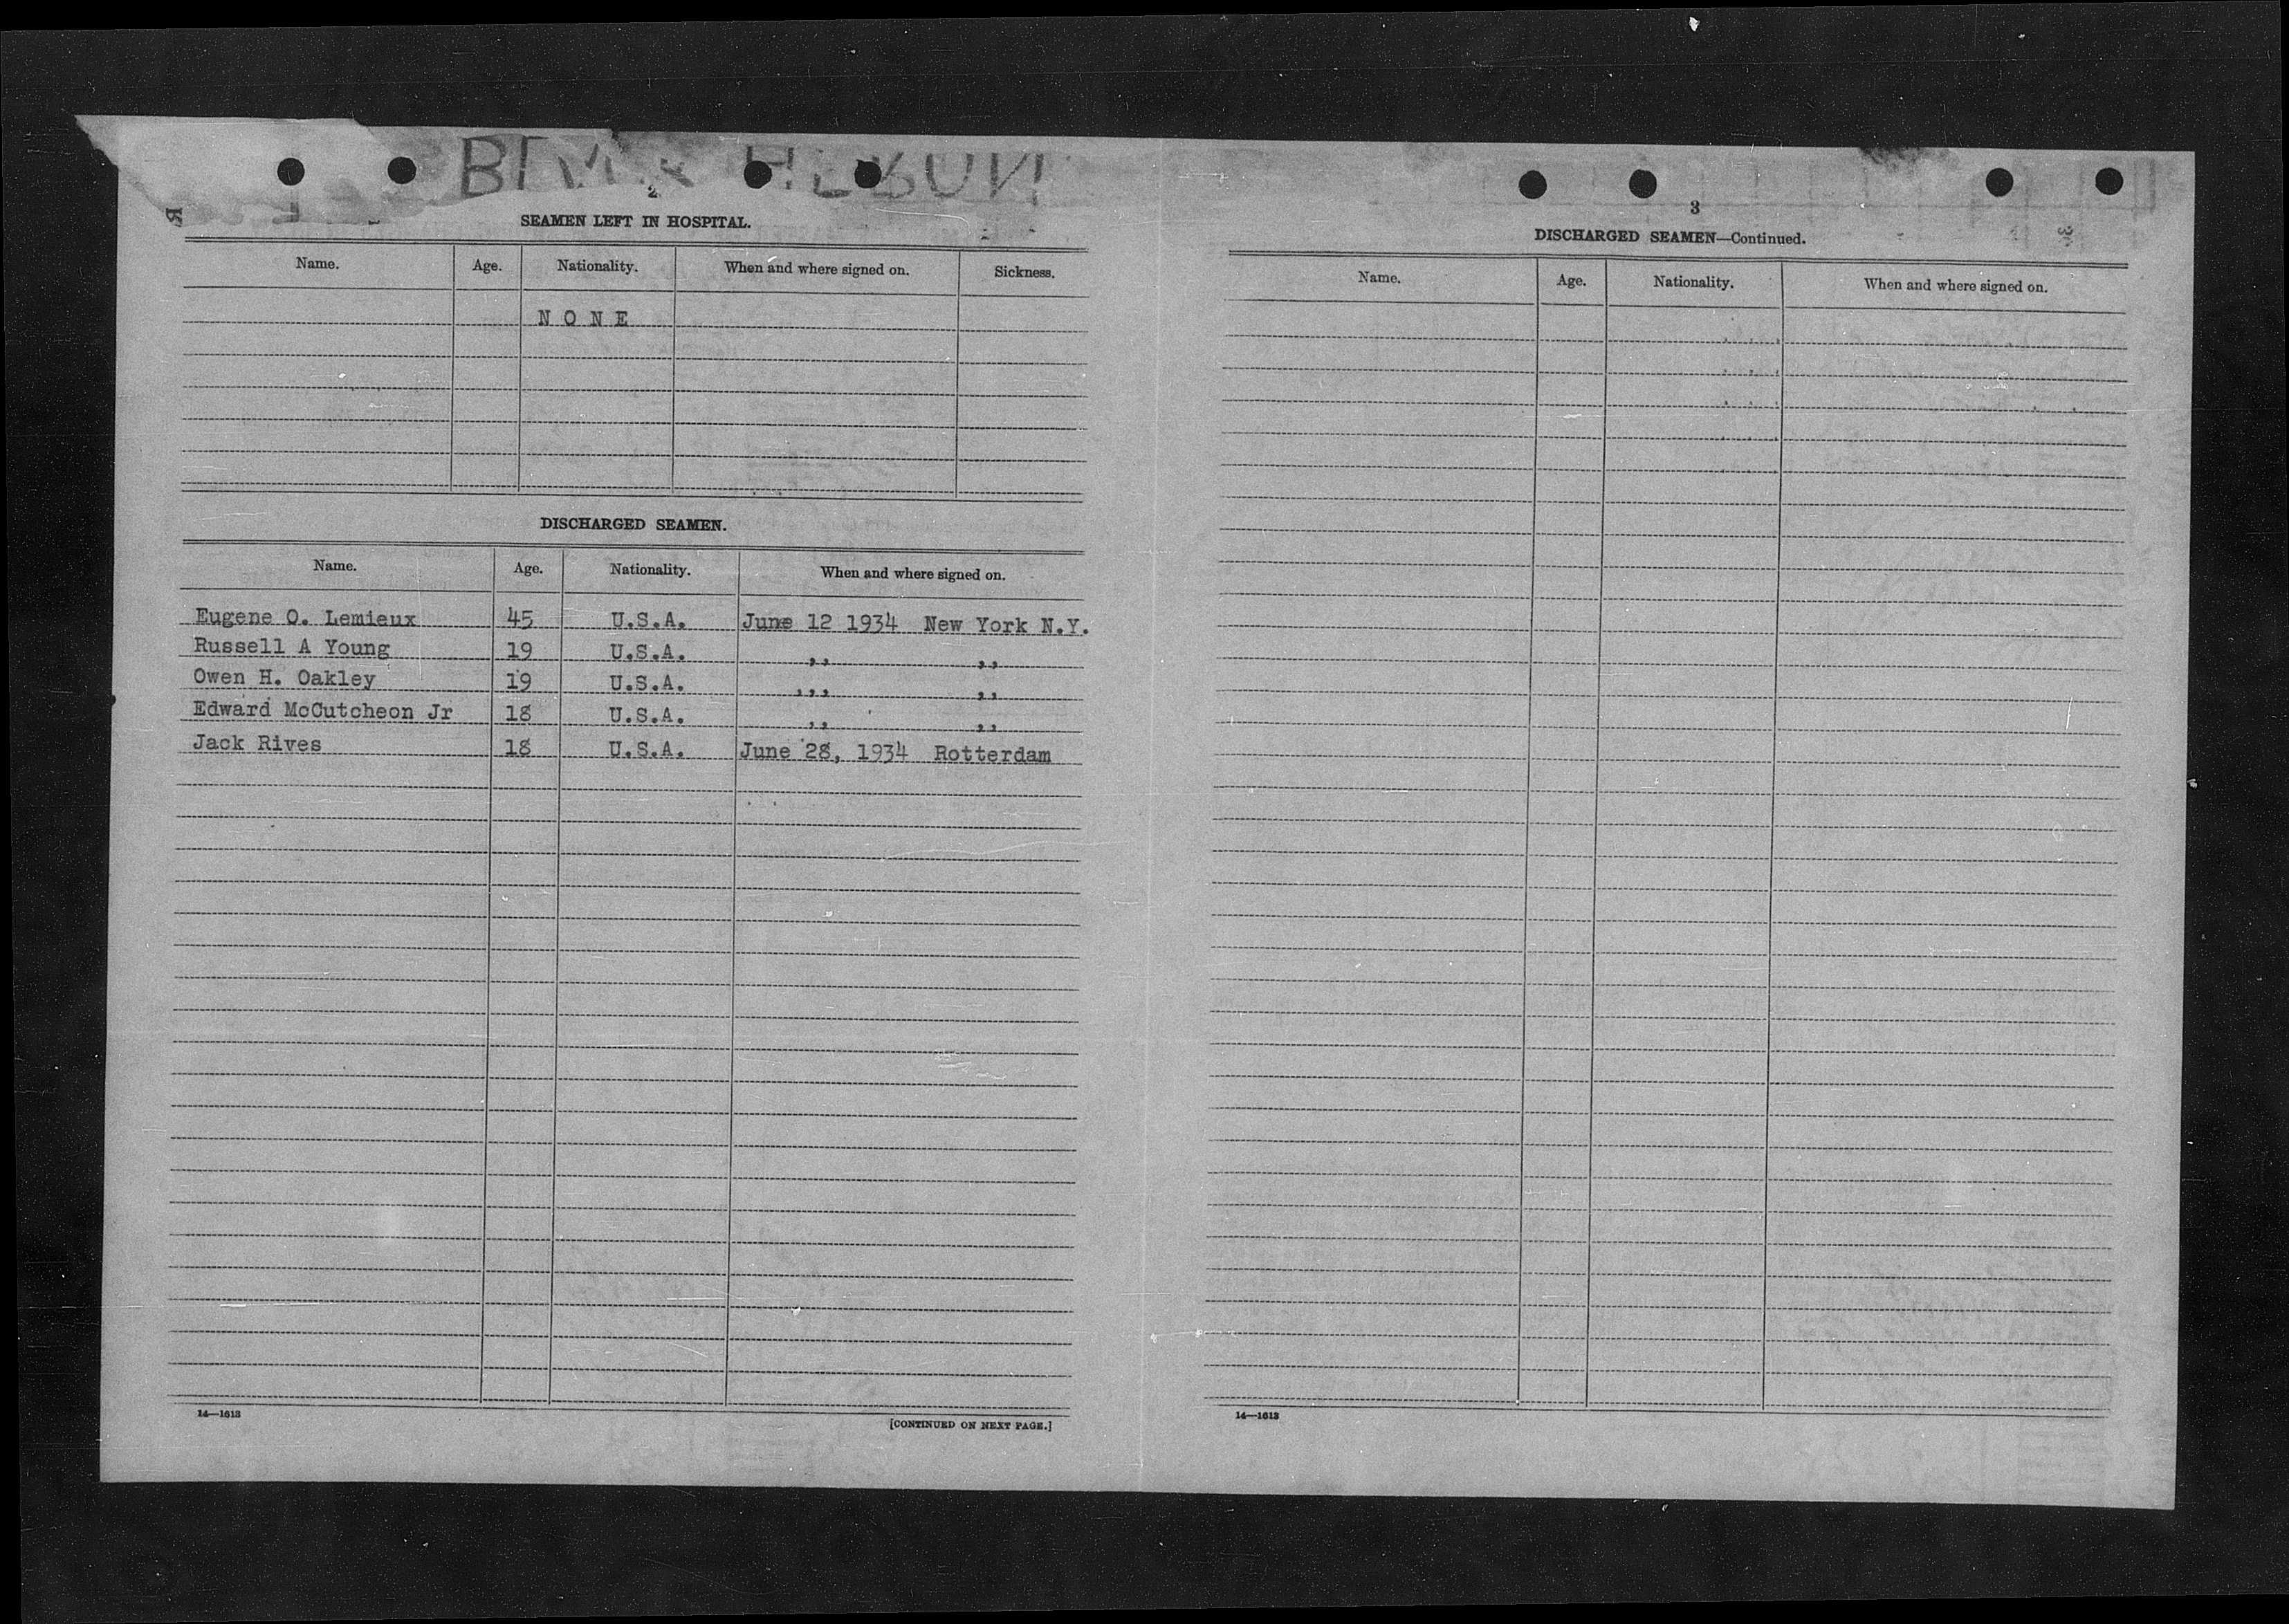 2
SEAMEN LEFT IN HOSPITAL.
Name. Age. Nationality. When and where signed on. Sickness.
N O N E
DISCHARGED SEAMEN.
Name. Age. Nationality. When and where signed on.
Eugene O. Lemieux 45 U.S.A. June 12 1934 New York N.Y.
Russell A Young 19 U.S.A. ,, ,,
Owen H. Oakley 19 U.S.A. ,,, ,,
Edward McCutcheon Jr 18 U.S.A. ,, ,,
Jack Rives 18 U.S.A. June 28, 1934 Rotterdam
14—1613
[CONTINUED ON NEXT PAGE.]
3
DISCHARGED SEAMEN—Continued.
Name. Age. Nationality. When and where signed on.
14—1613